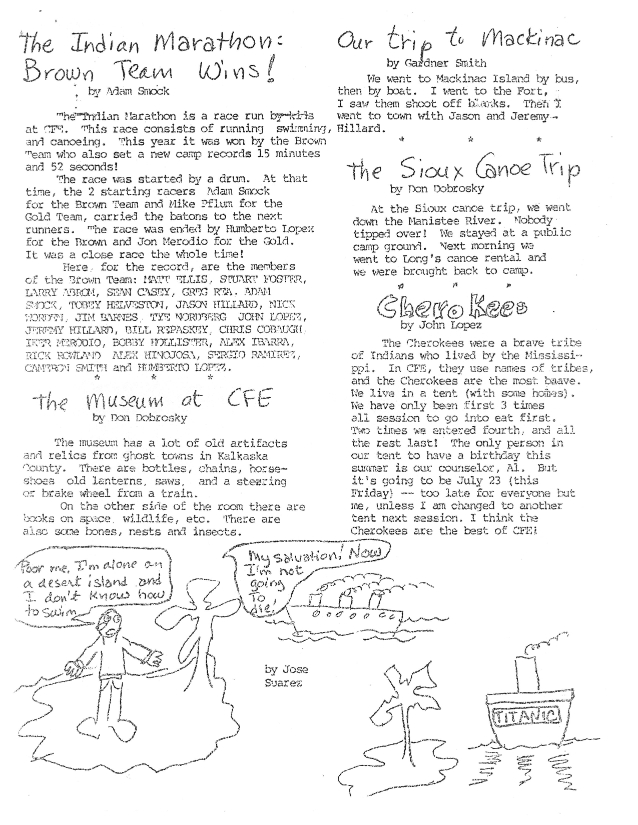 The Indian Marathon:
Brown Team Wins!
by Adam Smock
The Indian Marathon is a race run by kids
at CFE. This race consists of running swimming,
and canoeing. This year it was won by the Brown
Team who also set a new camp records 15 minutes
and 52 seconds!
The race was started by a drum. At that
time, the 2 starting racers Adam Smock
for the Brown Team and Mike Pflum for the
Gold Team, carried the batons to the next
runners. The race was ended by Humberto Lopex
for the Brown and Jon Merodio for the Gold.
It was a close race the whole time!
Here, for the record, are the members
of the Brown Team: MATT ELLIS, STUART FOSTER,
LARRY ABROM, SEAN CASEY, GREG REA, ADAM
SMOCK, TOBEY HELVESTON, JASON HILLARD, NICK
JIM BARNES, TYE NORDBERG JOHN LOPEZ,
JEREMY HILLARD, BILL REPASKEY, CHRIS COBAUGH,
IKER MERODIO, BOBBY HOLLISTER, ALEX IBARRA,
RICK ROWLAND ALEX HINOJOSA, SERGIO RAMIREZ,
CAMERON SMITH and HUMBERTO LOPEZ.
* * *
The Museum at CFE
by Don Dobrosky
The museum has a lot of old artifacts
and relics from ghost towns in Kalkaska
County. There are bottles, chains, horse-
shoes old lanterns, saws, and a steering
or brake wheel from a train.
On the other side of the room there are
books on space, wildlife, etc. There are
also some bones, nests and insects.
Our trip to Mackinac
by Gardner Smith
We went to Mackinac Island by bus,
then by boat. I went to the Fort,
I saw them shoot off blanks. Then I
went to town with Jason and Jeremy
Hillard.
* * *
The Sioux Canoe Trip
by Don Dobrosky
At the Sioux canoe trip, we went
down the Manistee River. Nobody
tipped over! We stayed at a public
camp ground. Next morning we
went to Long's canoe rental and
we were brought back to camp.
* * *
Cherokees
by John Lopez
The Cherokees were a brave tribe
of Indians who lived by the Mississi-
ppi. In CFE, they use names of tribes,
and the Cherokees are the most baave.
We live in a tent (with some homes).
We have only been first 3 times
all session to go into eat first.
Two times we entered fourth, and all
the rest last! The only person in
our tent to have a birthday this
summer is our counselor, Al. But
it's going to be July 23 (this
Friday) -- too late for everyone but
me, unless I am changed to another
tent next session. I think the
Cherokees are the best of CFE!
Poor me, I'm alone on
a desert island and
I don't know how
to swim
My salvation! Now
I'm not
going
To
die!
by Jose
Suarez
TITANIC